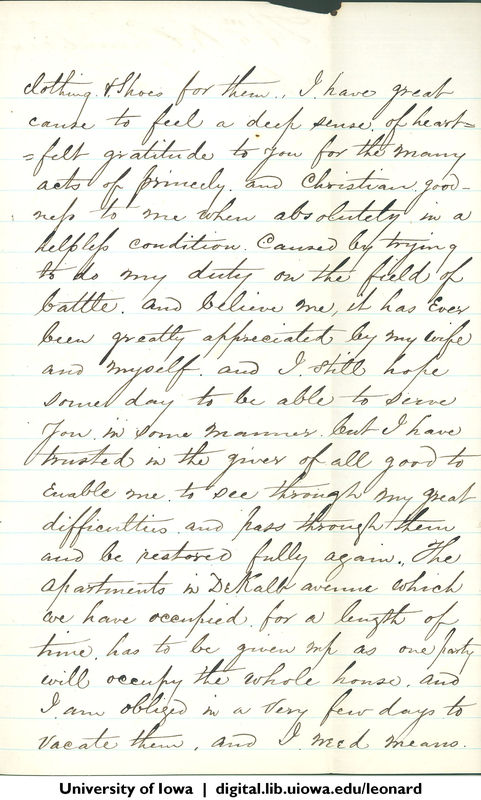 clothing & Shoes for them.. I have great
cause to feel a deep sense of heart=
=felt gratitude to you for the many
acts of princely. and Christian good-
ness to me when absolutely in a
helpless condition. Caused by trying
to do my duty on the field of
battle. and believe me, it has Ever
been greatly appreciated by my wife
and myself. and I still hope
some day to be able to serve
you in some manner. but I have
trusted in the giver of all good to
Enable me. to see through my great
difficulties and pass through them
and be restored fully again.. The
apartments in DeKalb avenue which
we have occupied for a length of
time. has to be given up as one party
will occupy the whole house. and
I am obliged in a very few days to
vacate them, and I need means.
University of Iowa | digital.lib.uiowa.edu/leonard